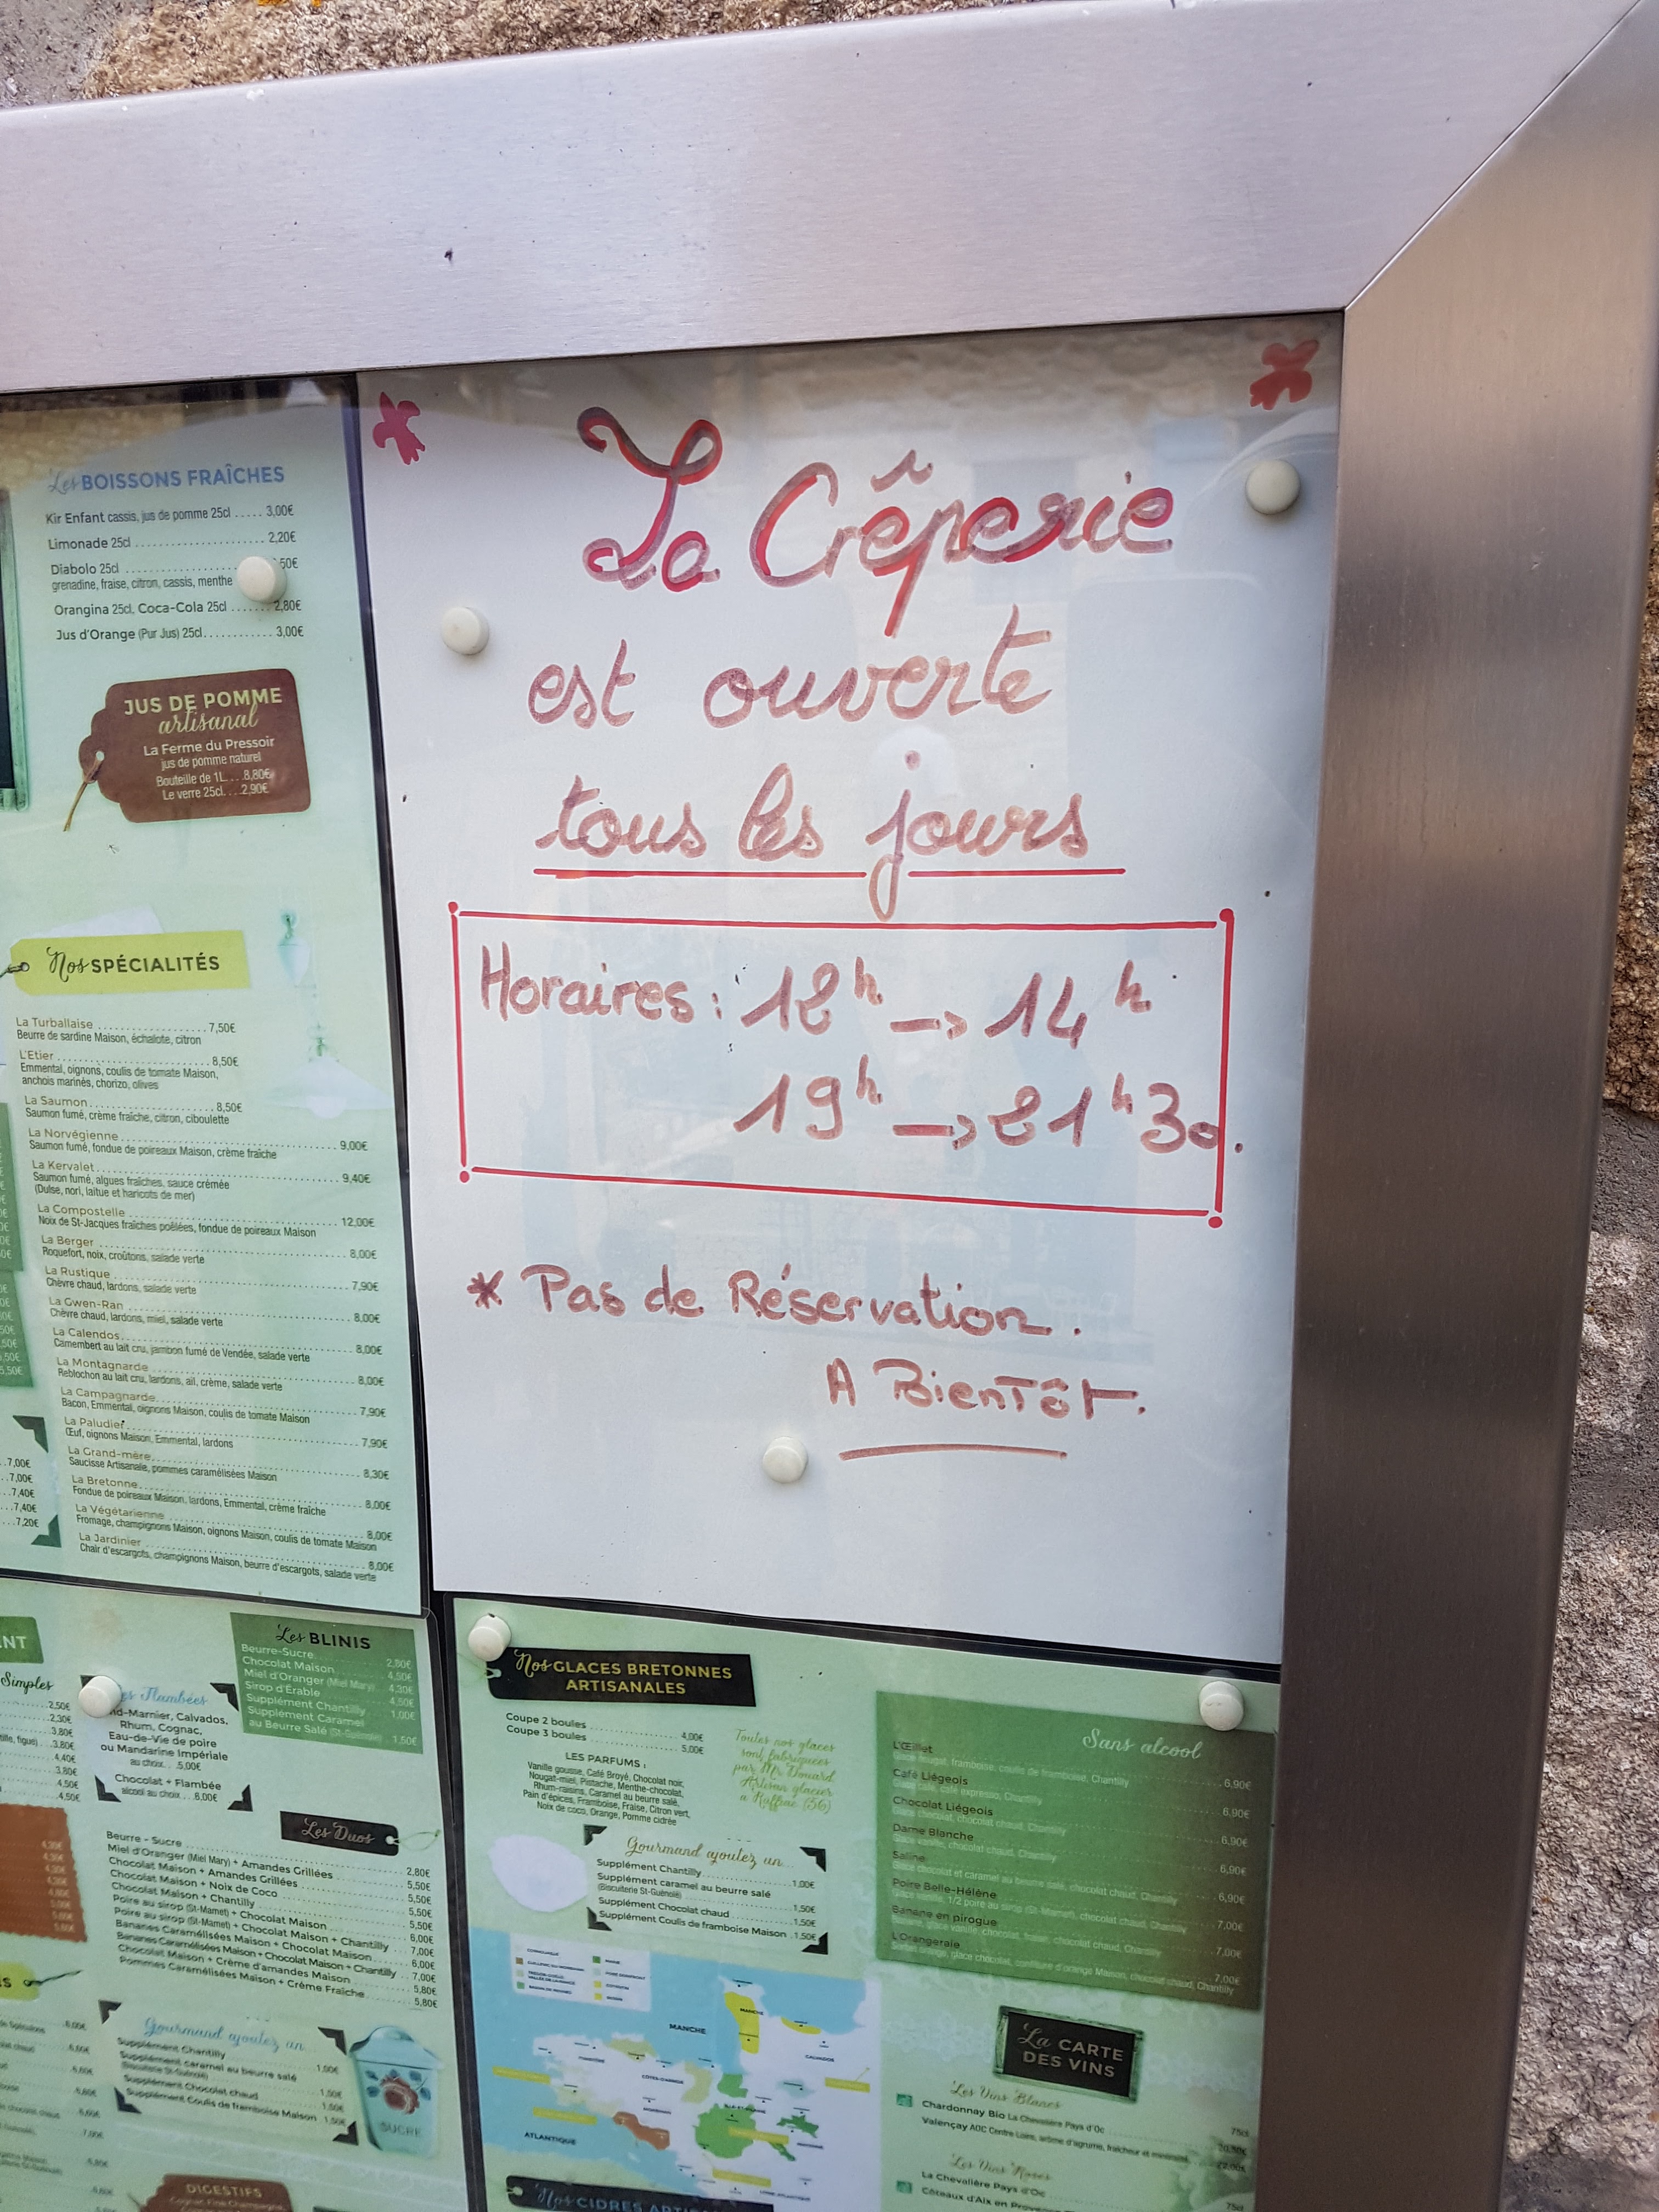 Les BOISSONS FRAÎCHES
Kir Enfant cassis, jus de pomme 25cl ..... 3,00€
Limonade 25cl ..................... 2,20€
Diabolo 25cl .............. 50€
grenadine, fraise, citron, cassis, menthe
Orangina 25cl, Coca-Cola 25cl ....... 2,80€
Jus d'Orange (Pur Jus) 25cl............ 3,00€
JUS DE POMME
artisanal
La Ferme du Pressoir
jus de pomme naturel
Bouteille de 1L....8,80€
Le verre 25cl....2,90€
Nos SPÉCIALITÉS
La Turballaise .................. 7,50€
Beurre de sardine Maison, échalote, citron
L'Etier ......................... 8,50€
Emmental, oignons, coulis de tomate Maison,
anchois marinés, chorizo, olives
La Saumon...................... 8,50€
Saumon fumé, crème fraîche, citron, ciboulette
La Norvégienne ............................ 9,00€
Saumon fumé, fondue de poireaux Maison, crème fraîche
La Kervalet ............................ 9,40€
Saumon fumé, algues fraîches, sauce crémée
(Dulse, nori, laitue et haricots de mer)
La Compostelle ............................ 12,00€
Noix de St-Jacques fraîches poêlées, fondue de poireaux Maison
La Berger ............................ 8,00€
Roquefort, noix, croûtons, salade verte
La Rustique ............................ 7,90€
Chèvre chaud, lardons, salade verte
La Gwen-Ran ............................ 8,00€
Chèvre chaud, lardons, miel, salade verte
La Calendos ............................ 8,00€
Camembert au lait cru, jambon fumé de Vendée, salade verte
La Montagnarde ............................ 8,00€
Reblochon au lait cru, lardons, ail, crème, salade verte
La Campagnarde ............................ 7,90€
Bacon, Emmental, oignons Maison, coulis de tomate Maison
La Paludier ............................ 7,90€
Œuf, oignons Maison, Emmental, lardons
La Grand-mère ............................ 8,30€
Saucisse Artisanale, pommes caramélisées Maison
La Bretonne ............................ 8,00€
Fondue de poireaux Maison, lardons, Emmental, crème fraîche
La Végétarienne ............................ 8,00€
Fromage, champignons Maison, oignons Maison, coulis de tomate Maison
La Jardinier ............................ 8,00€
Chair d'escargots, champignons Maison, beurre d'escargots, salade verte
..7,00€
...7,00€
...7,40€
...7,40€
...7,20€
La Crêperie
est ouverte
tous les jours
Horaires : 12h -> 14h
19h -> 21h30.
* Pas de Réservation.
A Bientôt.
NT
Simples
...2,50€
...2,30€
...3,80€
...3,80€
4,40€
3,80€
4,50€
4,50€
Flambées
nd-Marnier, Calvados,
Rhum, Cognac,
Eau-de-Vie de poire
ou Mandarine Impériale
au choix....5,00€
Chocolat + Flambée
alcool au choix ...6,00€
Les BLINIS
Beurre-Sucre................ 2,80€
Chocolat Maison........... 4,50€
Miel d'Oranger (Miel Mary) .... 4,30€
Sirop d'Érable .............. 4,50€
Supplément Chantilly ....... 1,00€
Supplément Caramel
au Beurre Salé (St-Guénolé) .. 1,50€
Les Duos
Beurre - Sucre ............................ 2,80€
Miel d'Oranger (Miel Mary) + Amandes Grillées ... 5,50€
Chocolat Maison + Amandes Grillées ......... 5,50€
Chocolat Maison + Noix de Coco ......... 5,50€
Chocolat Maison + Chantilly ......... 5,50€
Poire au sirop (St-Mamet) + Chocolat Maison ..... 6,00€
Poire au sirop (St-Mamet) + Chocolat Maison + Chantilly .. 7,00€
Bananes Caramélisées Maison + Chocolat Maison ..... 6,00€
Bananes Caramélisées Maison + Chocolat Maison + Chantilly .. 7,00€
Chocolat Maison + Crème d'amandes Maison ....... 5,80€
Pommes Caramélisées Maison + Crème Fraîche ...... 5,80€
Gourmand ajoutez un
Supplément Chantilly ......... 1,00€
Supplément caramel au beurre salé
(Biscuiterie St-Guénolé) ......... 1,50€
Supplément Chocolat chaud ......... 1,50€
Supplément Coulis de framboise Maison .. 1,50€
SUCRE
DIGESTIFS
Nos GLACES BRETONNES
ARTISANALES
Coupe 2 boules .................. 4,00€
Coupe 3 boules .................. 5,00€
LES PARFUMS :
Vanille gousse, Café Broyé, Chocolat noir,
Nougat-miel, Pistache, Menthe-chocolat,
Rhum-raisins, Caramel au beurre salé,
Pain d'épices, Framboise, Fraise, Citron vert,
Noix de coco, Orange, Pomme cidrée
Toutes nos glaces
sont fabriquées
par Mr Douard
Artisan glacier
Gourmand ajoutez un...
Supplément Chantilly .................. 1,00€
Supplément caramel au beurre salé
(Biscuiterie St-Guénolé) .................. 1,50€
Supplément Chocolat chaud .................. 1,50€
Supplément Coulis de framboise Maison . 1,50€
Sans alcool
L'Œillet ............................ 6,90€
Glace nougat, framboise, coulis de framboise, Chantilly
Café Liégeois ............................ 6,90€
Glace café, café expresso, Chantilly
Chocolat Liégeois ............................ 6,90€
Glace chocolat, chocolat chaud, Chantilly
Dame Blanche ............................ 6,90€
Glace vanille, chocolat chaud, Chantilly
Saline ............................ 6,90€
Glace chocolat et caramel au beurre salé, chocolat chaud, Chantilly
Poire Belle-Hélène ............................ 7,00€
Glace vanille, 1/2 poire au sirop (St-Mamet), chocolat chaud, Chantilly
Banane en pirogue ............................ 7,00€
Banane, glace vanille, chocolat, fraise, chocolat chaud, Chantilly
L'Orangeraie ............................ 7,00€
Sorbet orange, glace chocolat, confiture d'orange Maison, chocolat chaud, Chantilly
MANCHE
MANCHE
CALVADOS
FINISTÈRE
ATLANTIQUE
La CARTE
DES VINS
Les Vins Blancs
75cl
Chardonnay Bio La Chevalière Pays d'Oc
Valençay AOC Centre Loire, arôme d'agrume, fraîcheur et minéralité
Les Vins Rosés
75cl
La Chevalière Pays d'Oc
Côteaux d'Aix en Provence
Nos CIDRES